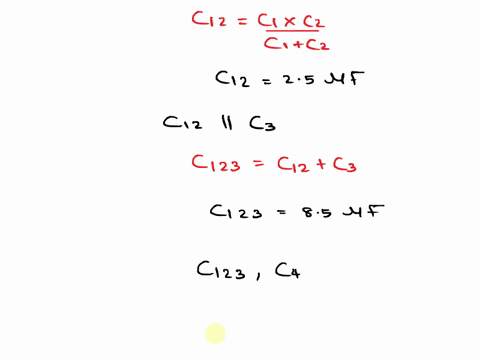 C12 = C1 × C2
C1 + C2
C12 = 2.5 μF
C12 || C3
C123 = C12 + C3
C123 = 8.5 μF
C123 , C4